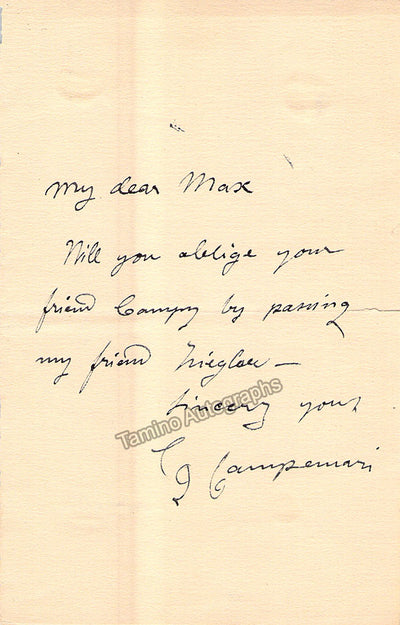 My dear Max
Will you oblige your
friend Campy by passing
my friend Ziegler —
Sincerely yours
G Campanari
Tamino Autographs